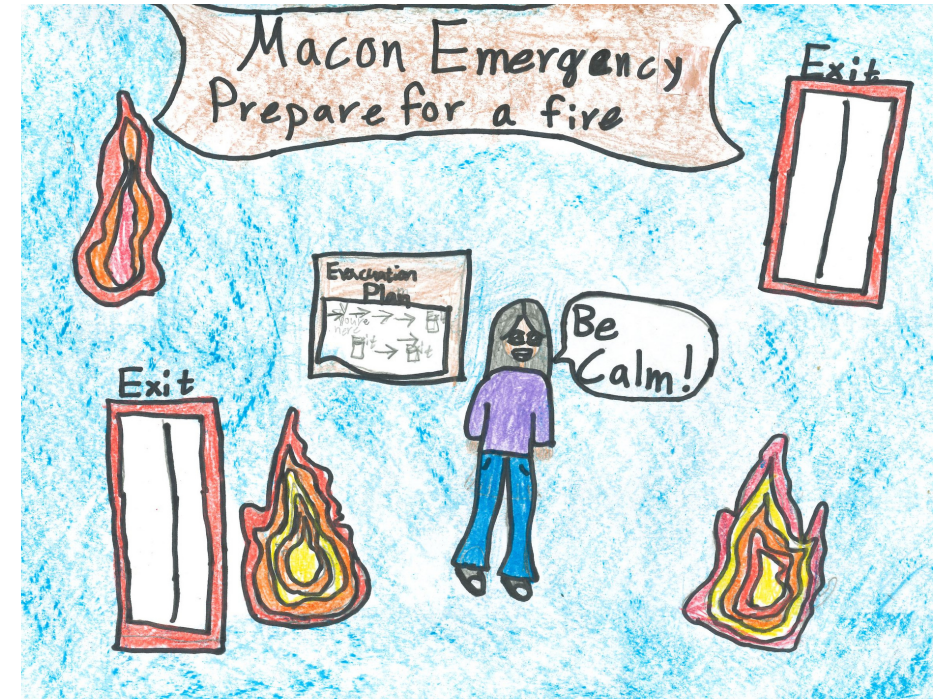 Macon Emergency
Prepare for a fire
Exit
Evacuation
Plan
You're
here
Be
Calm!
Exit